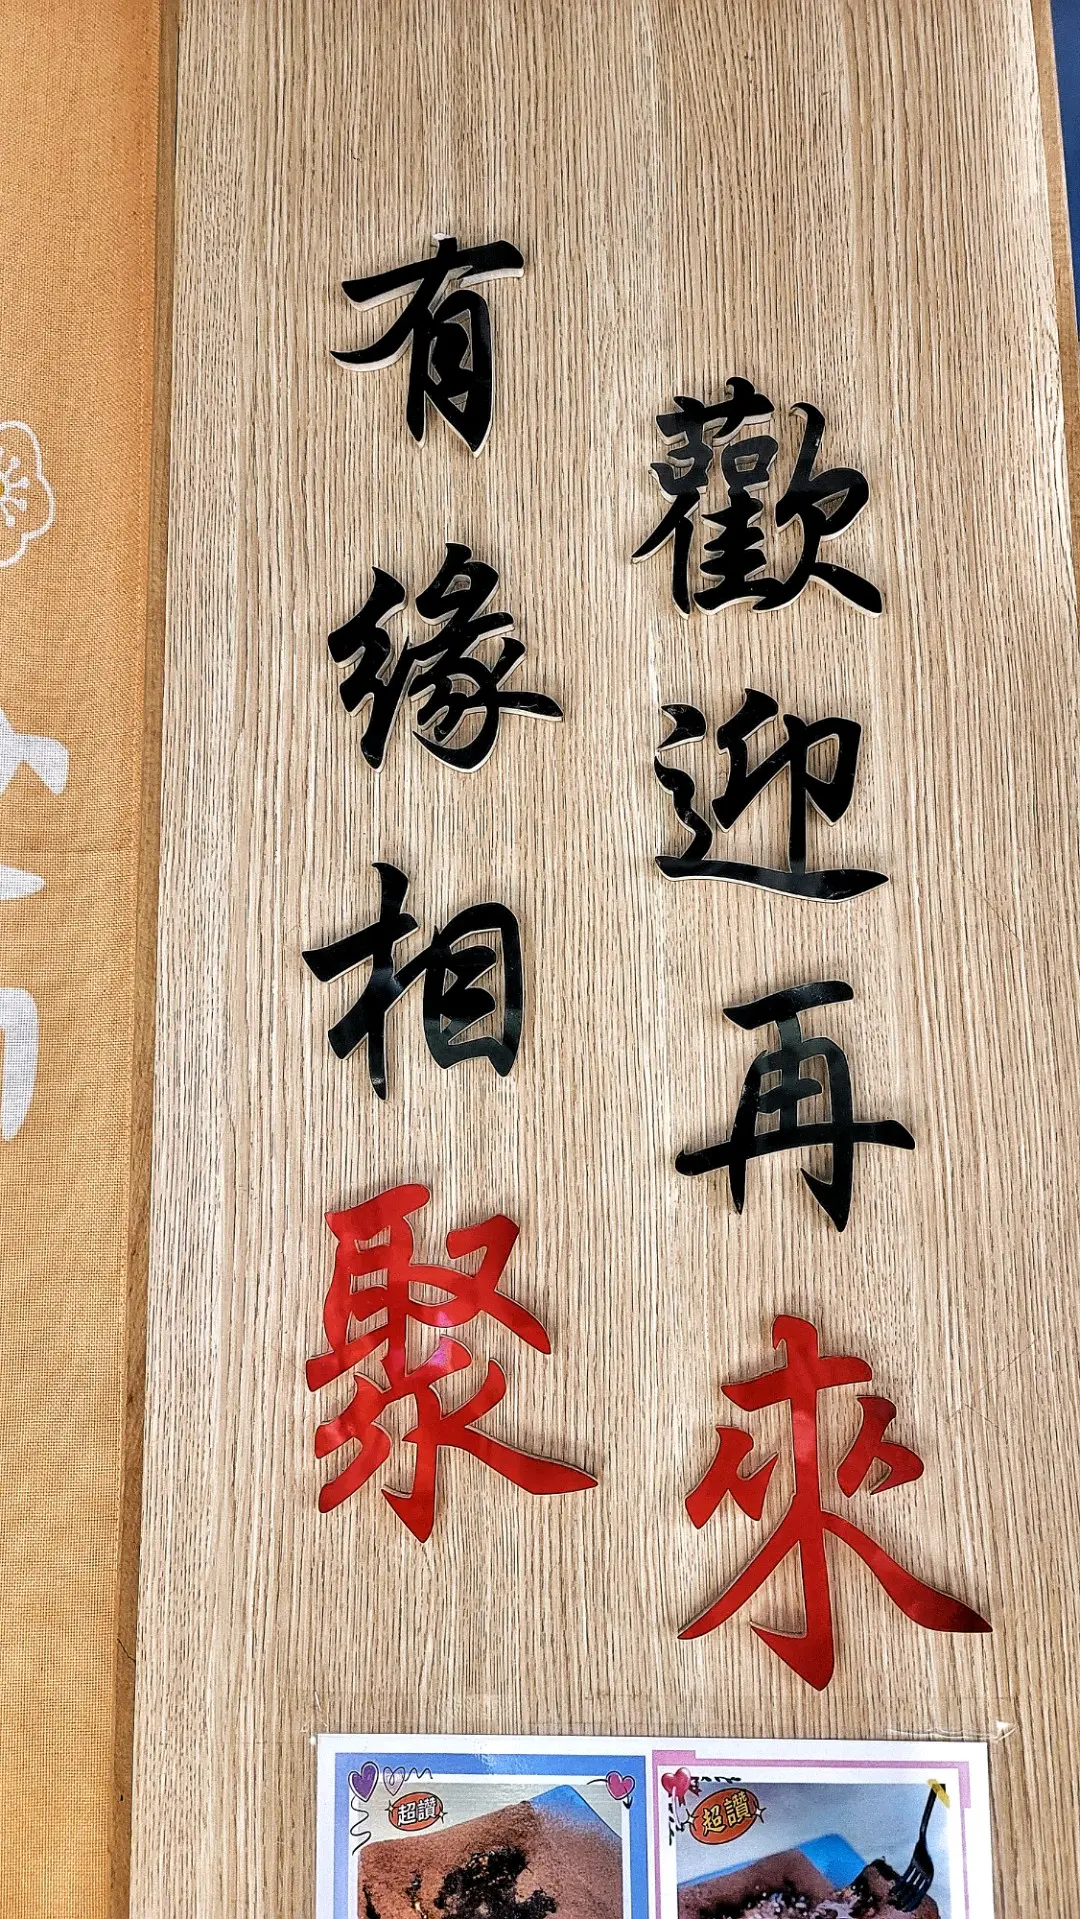 歡迎再來
有緣相聚
超讚
超讚